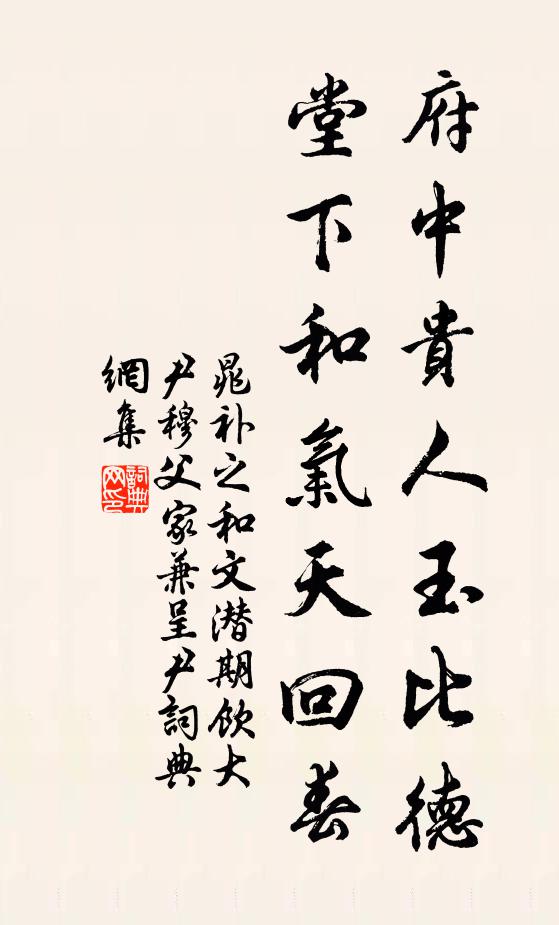 府中貴人玉比德
堂下和氣天回春
晁补之和文潜期飲大
尹穆父家兼呈尹詞典
網集
詞典網印